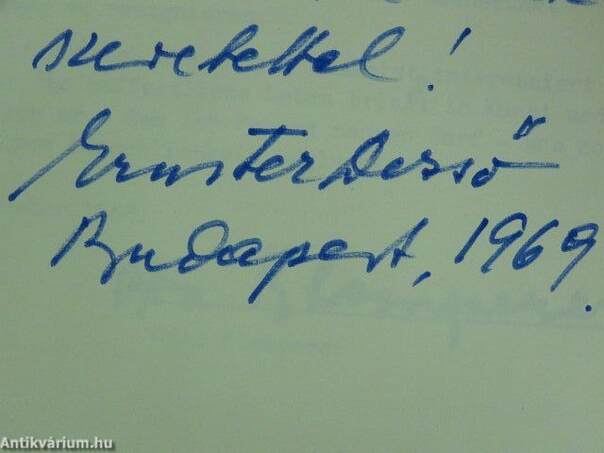 szeretettel!
Ernster Dezső
Budapest, 1969.
Antikvárium.hu